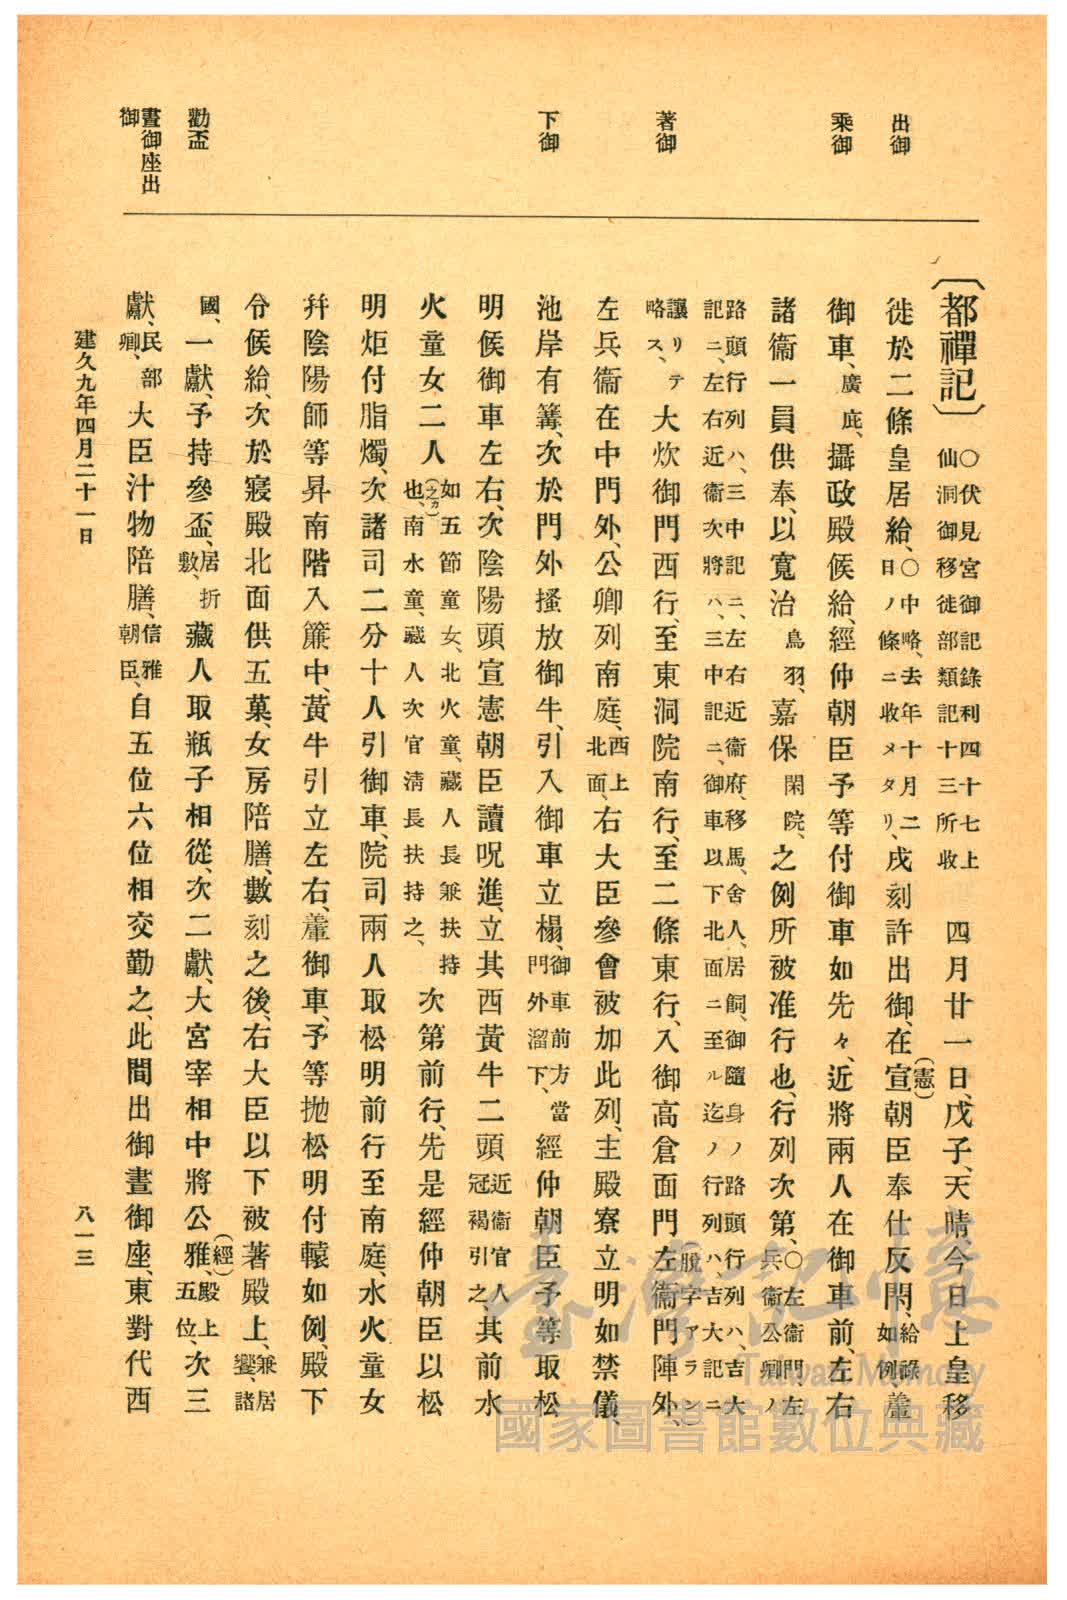 出御
乘御
著御
下御
勸盃
晝御座出
御
〔都禪記〕 ○伏見宮御記錄利四十七上
仙洞御移徙部類記十三所收 四月廿一日、戊子、天晴、今日上皇移
徙於二條皇居給、○中略、去年十月二
日ノ條ニ收メタリ、戌刻許出御、在宣(憲)朝臣奉仕反閇、給祿
如例、輦
御車、廣庇、攝政殿候給、經仲朝臣予等付御車如先々、近將兩人在御車前、左右
諸衞一員供奉、以寬治鳥羽、嘉保閑院、之例所被准行也、行列次第、○左衞門、左
兵衞公卿ノ
路頭行列ハ、三中記ニ、左右近衞府、移馬、舍人、居飼、御隨身ノ路頭行列ハ、吉大
記ニ、左右近衞次將ハ、三中記ニ、御車以下北面ニ至ル迄ノ行列ハ、吉大記ニ
讓リテ
略ス、大炊御門西行、至東洞院南行、至二條東行、入御高倉面門左衞門陣外、脫字アラン、
左兵衞在中門外、公卿列南庭、西上
北面、右大臣參會被加此列、主殿寮立明如禁儀、
池岸有篝、次於門外搔放御牛、引入御車立榻、御車前方當
門外溜下、經仲朝臣予等取松
明候御車左右、次陰陽頭宣憲朝臣讀呪進、立其西黃牛二頭近衞官人
冠褐引之、其前水
火童女二人如五節童女、北火童、藏人長兼扶持
也(之カ)、南水童、藏人次官淸長扶持之、次第前行、先是經仲朝臣以松
明炬付脂燭、次諸司二分十人引御車、院司兩人取松明前行至南庭、水火童女
幷陰陽師等昇南階入簾中、黃牛引立左右、輦御車、予等抛松明付轅如例、殿下
令候給、次於寢殿北面供五菓、女房陪膳、數刻之後、右大臣以下被著殿上、兼居
饗、諸
國、一獻、予持參盃、居折
敷、藏人取瓶子相從、次二獻、大宮宰相中將公雅(經)、殿上
五位、次三
獻、民部
卿、大臣汁物陪膳、信雅
朝臣、自五位六位相交勤之、此間出御晝御座、東對代西
建久九年四月二十一日
八一三
臺灣記憶
Taiwan Memory
國家圖書館數位典藏